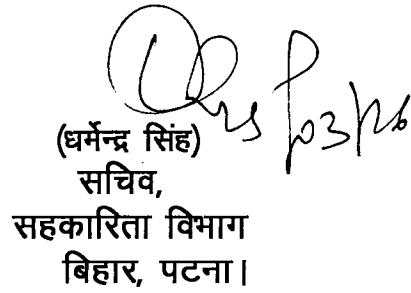 (धर्मेन्द्र सिंह)
सचिव,
सहकारिता विभाग
बिहार, पटना।